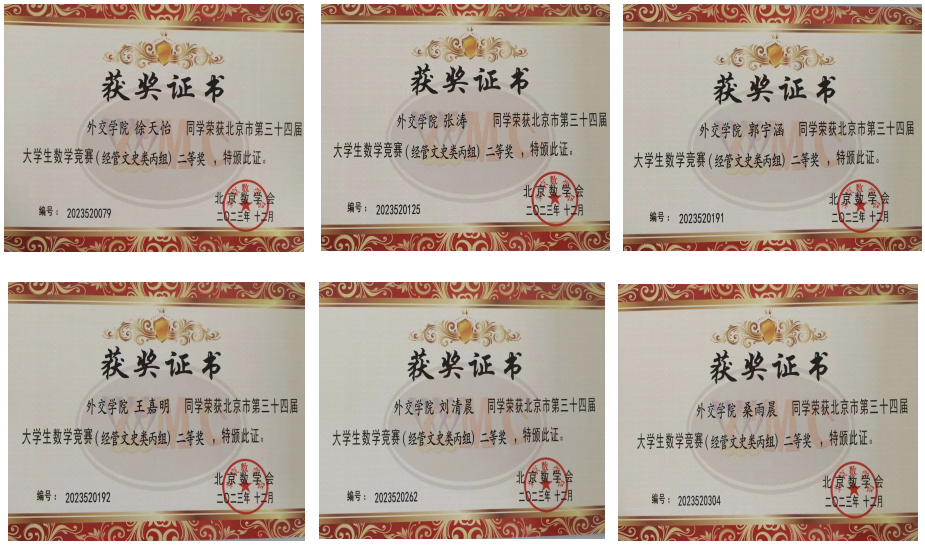 获奖证书
外交学院 徐天怡 同学荣获北京市第三十四届
大学生数学竞赛(经管文史类丙组)二等奖,特颁此证。
北京数学会
编号: 2023520079
二〇二三年 十二月
获奖证书
外交学院 张涛 同学荣获北京市第三十四届
大学生数学竞赛(经管文史类丙组)二等奖,特颁此证。
北京数学会
编号: 2023520125
二〇二三年 十二月
获奖证书
外交学院 郭宇涵 同学荣获北京市第三十四届
大学生数学竞赛(经管文史类丙组)二等奖,特颁此证。
北京数学会
编号: 2023520191
二〇二三年 十二月
获奖证书
外交学院 王嘉明 同学荣获北京市第三十四届
大学生数学竞赛(经管文史类丙组)二等奖,特颁此证。
北京数学会
编号: 2023520192
二〇二三年 十二月
获奖证书
外交学院 刘清晨 同学荣获北京市第三十四届
大学生数学竞赛(经管文史类丙组)二等奖,特颁此证。
北京数学会
编号: 2023520262
二〇二三年 十二月
获奖证书
外交学院 桑雨晨 同学荣获北京市第三十四届
大学生数学竞赛(经管文史类丙组)二等奖,特颁此证。
北京数学会
编号: 2023520304
二〇二三年 十二月